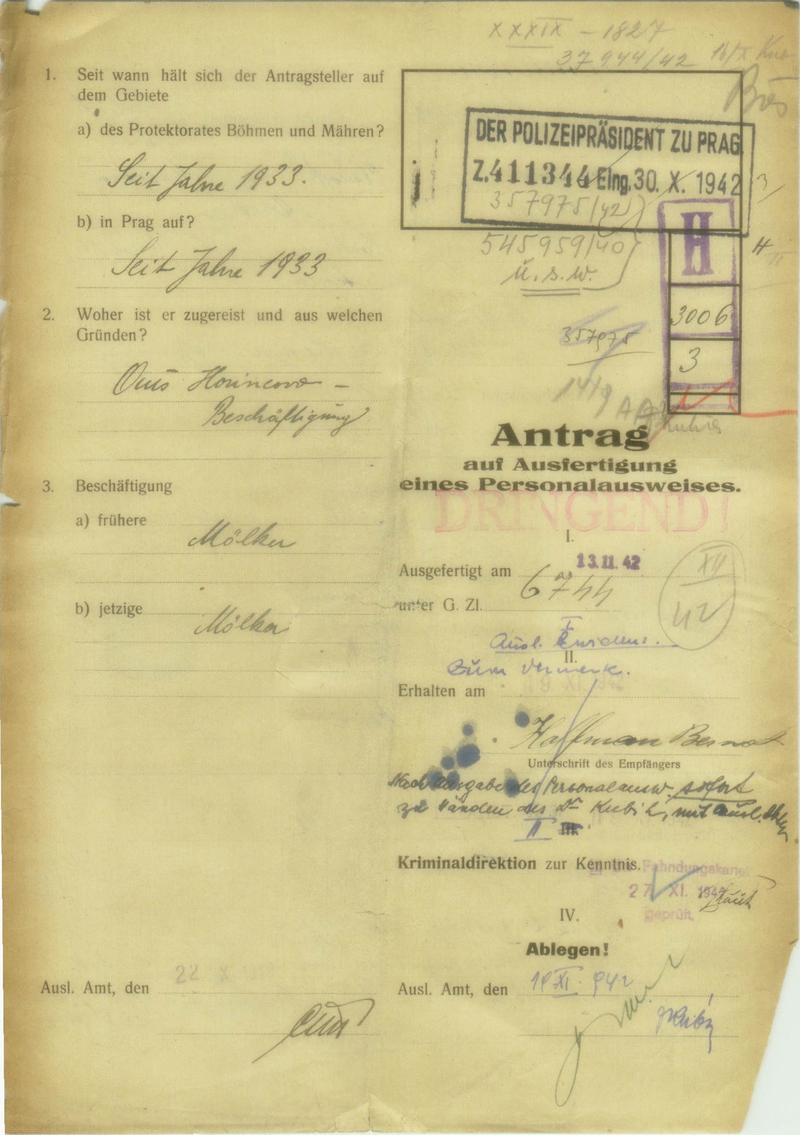 XXXIX - 1827
37944/42
1. Seit wann hält sich der Antragsteller auf
dem Gebiete
a) des Protektorates Böhmen und Mähren?
Seit Jahre 1933.
b) in Prag auf?
Seit Jahre 1933
2. Woher ist er zugereist und aus welchen
Gründen?
Beschäftigung
3. Beschäftigung
a) frühere
Mölker
b) jetzige
Mölker
Ausl. Amt, den
22 X
DER POLIZEIPRÄSIDENT ZU PRAG
Z. 411344 Eing. 30. X. 1942
357975/42
545959/40
u. s. w.
H
3006
3
357975
14/9
Antrag
auf Ausfertigung
eines Personalausweises.
DRINGEND!
I.
Ausgefertigt am 13.11.42
unter G. Zl. 6744
XII
42
I
II.
Zum Vermerk.
Erhalten am
Unterschrift des Empfängers
Nach Ausgabe des Personalausw. sofort
zu Händen des Dr Kubik, mit Ausl.
II III
Kriminaldirektion zur Kenntnis.
Fahndungskartei
27. XI. 1942
geprüft
IV.
Ablegen!
Ausl. Amt, den 19/XI. 942